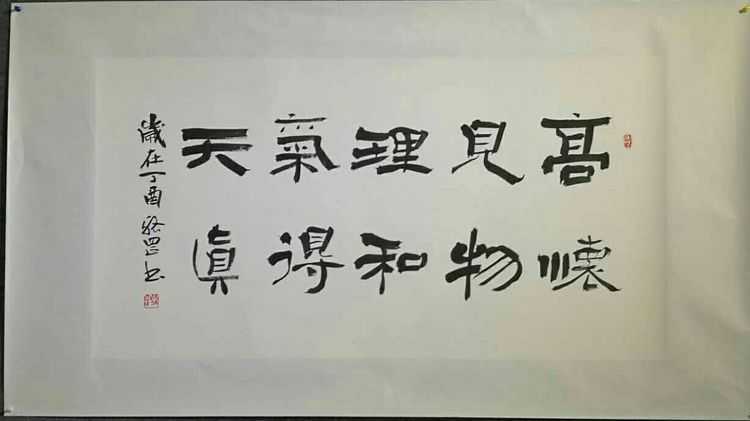 高懷
見物
理和
氣得
天真
歲在丁酉 書